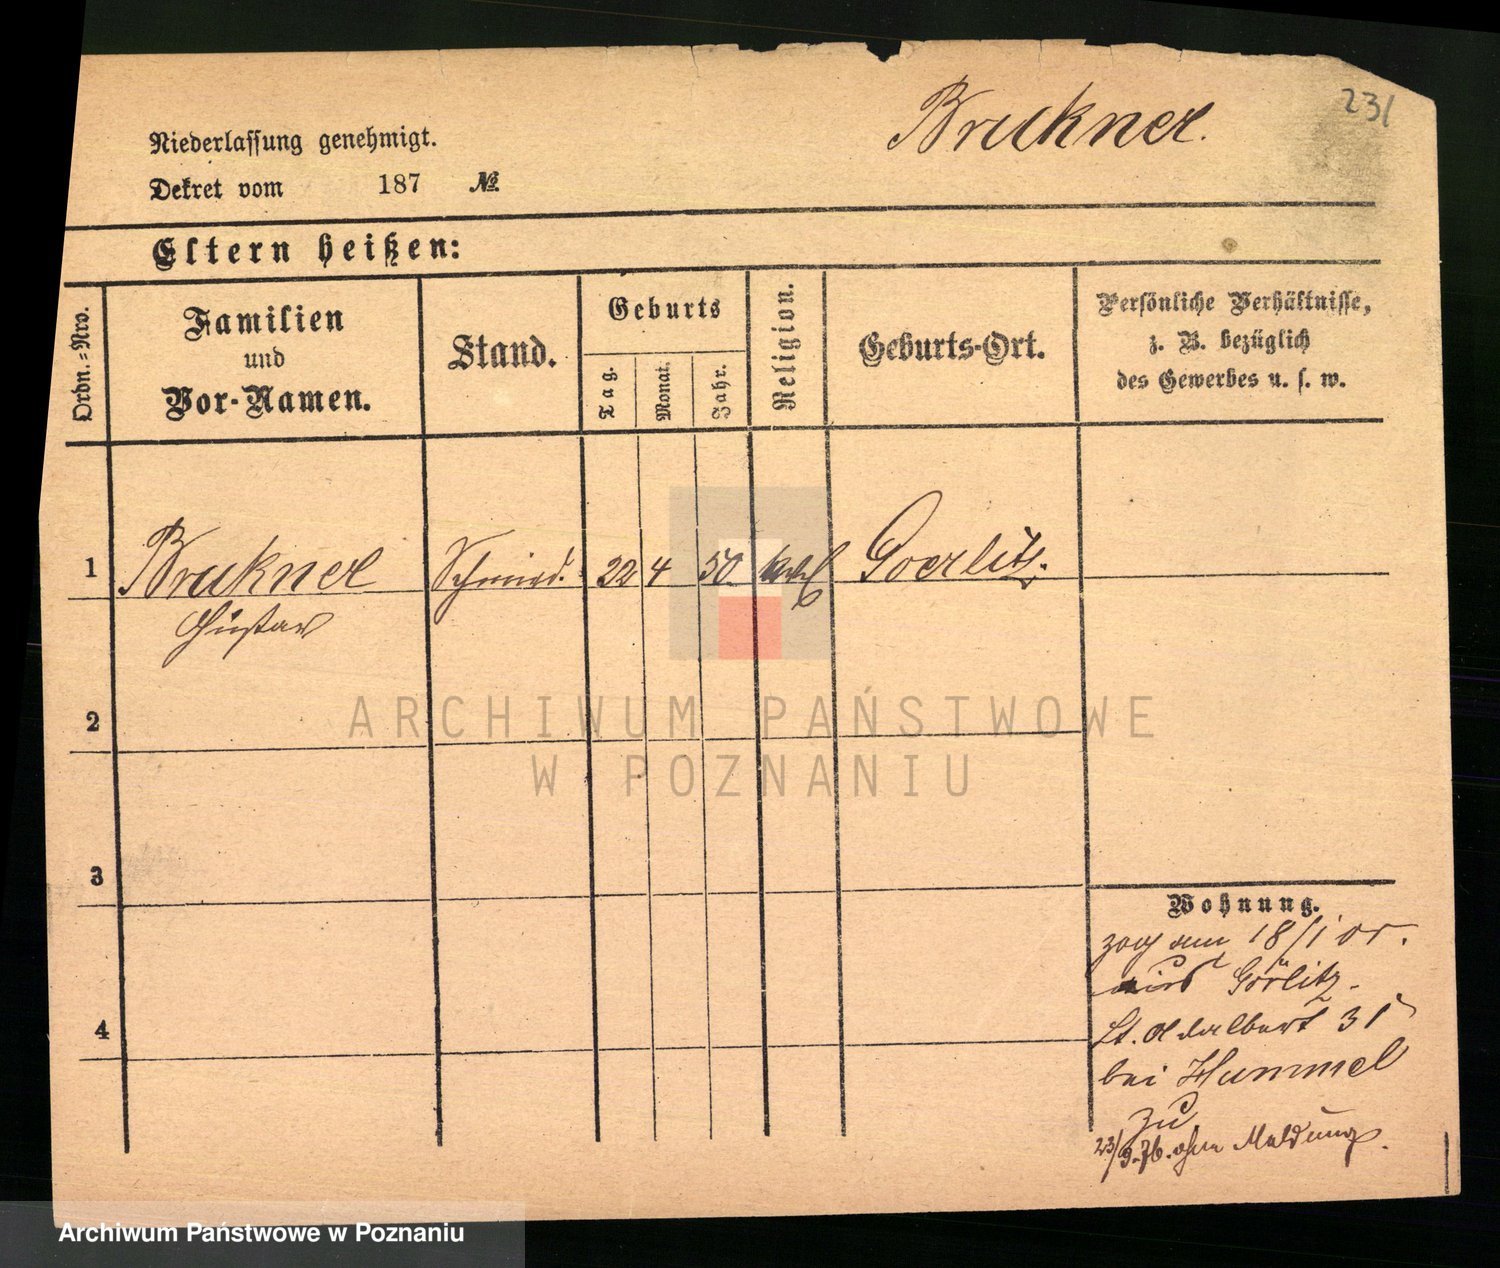 231
Bruckner.
Niederlassung genehmigt.
Dekret vom 187 №
Eltern heißen:
Ordn.=Nro.
Familien
und
Vor-Namen.
Stand.
Geburts
Tag.
Monat.
Jahr.
Religion.
Geburts-Ort.
Persönliche Verhältnisse,
z. B. bezüglich
des Gewerbes u. s. w.
1 Bruckner Schmied. 22 4 50 kath Goerlitz.
Gustav
2
3
4
Wohnung.
zog am 18/1 cr.
aus Görlitz.
St. Adalbert 31
bei Hummel
zu
23/9.76. ohne Meldung.
ARCHIWUM PAŃSTWOWE
W POZNANIU
Archiwum Państwowe w Poznaniu